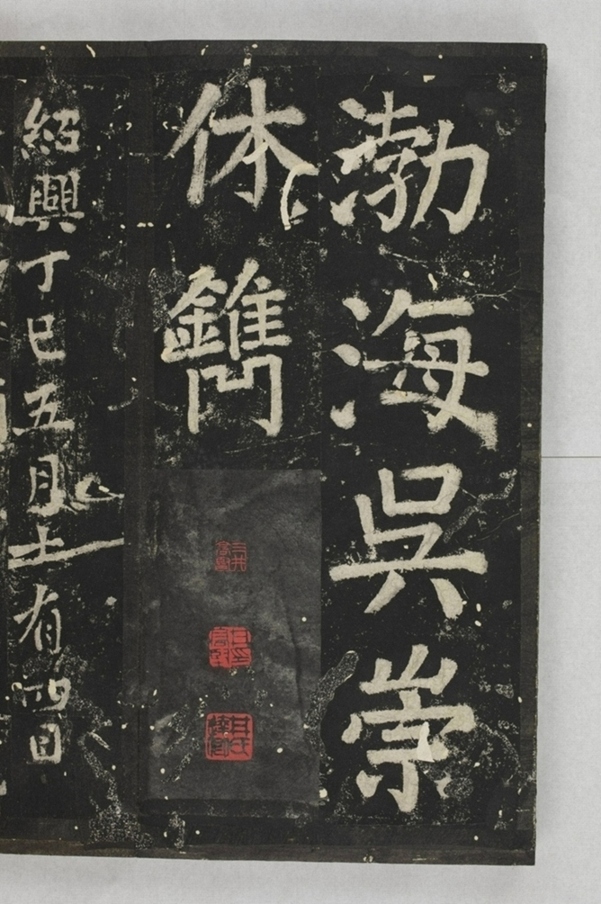 渤海吳崇
休鐫
紹興丁巳五月十有四日